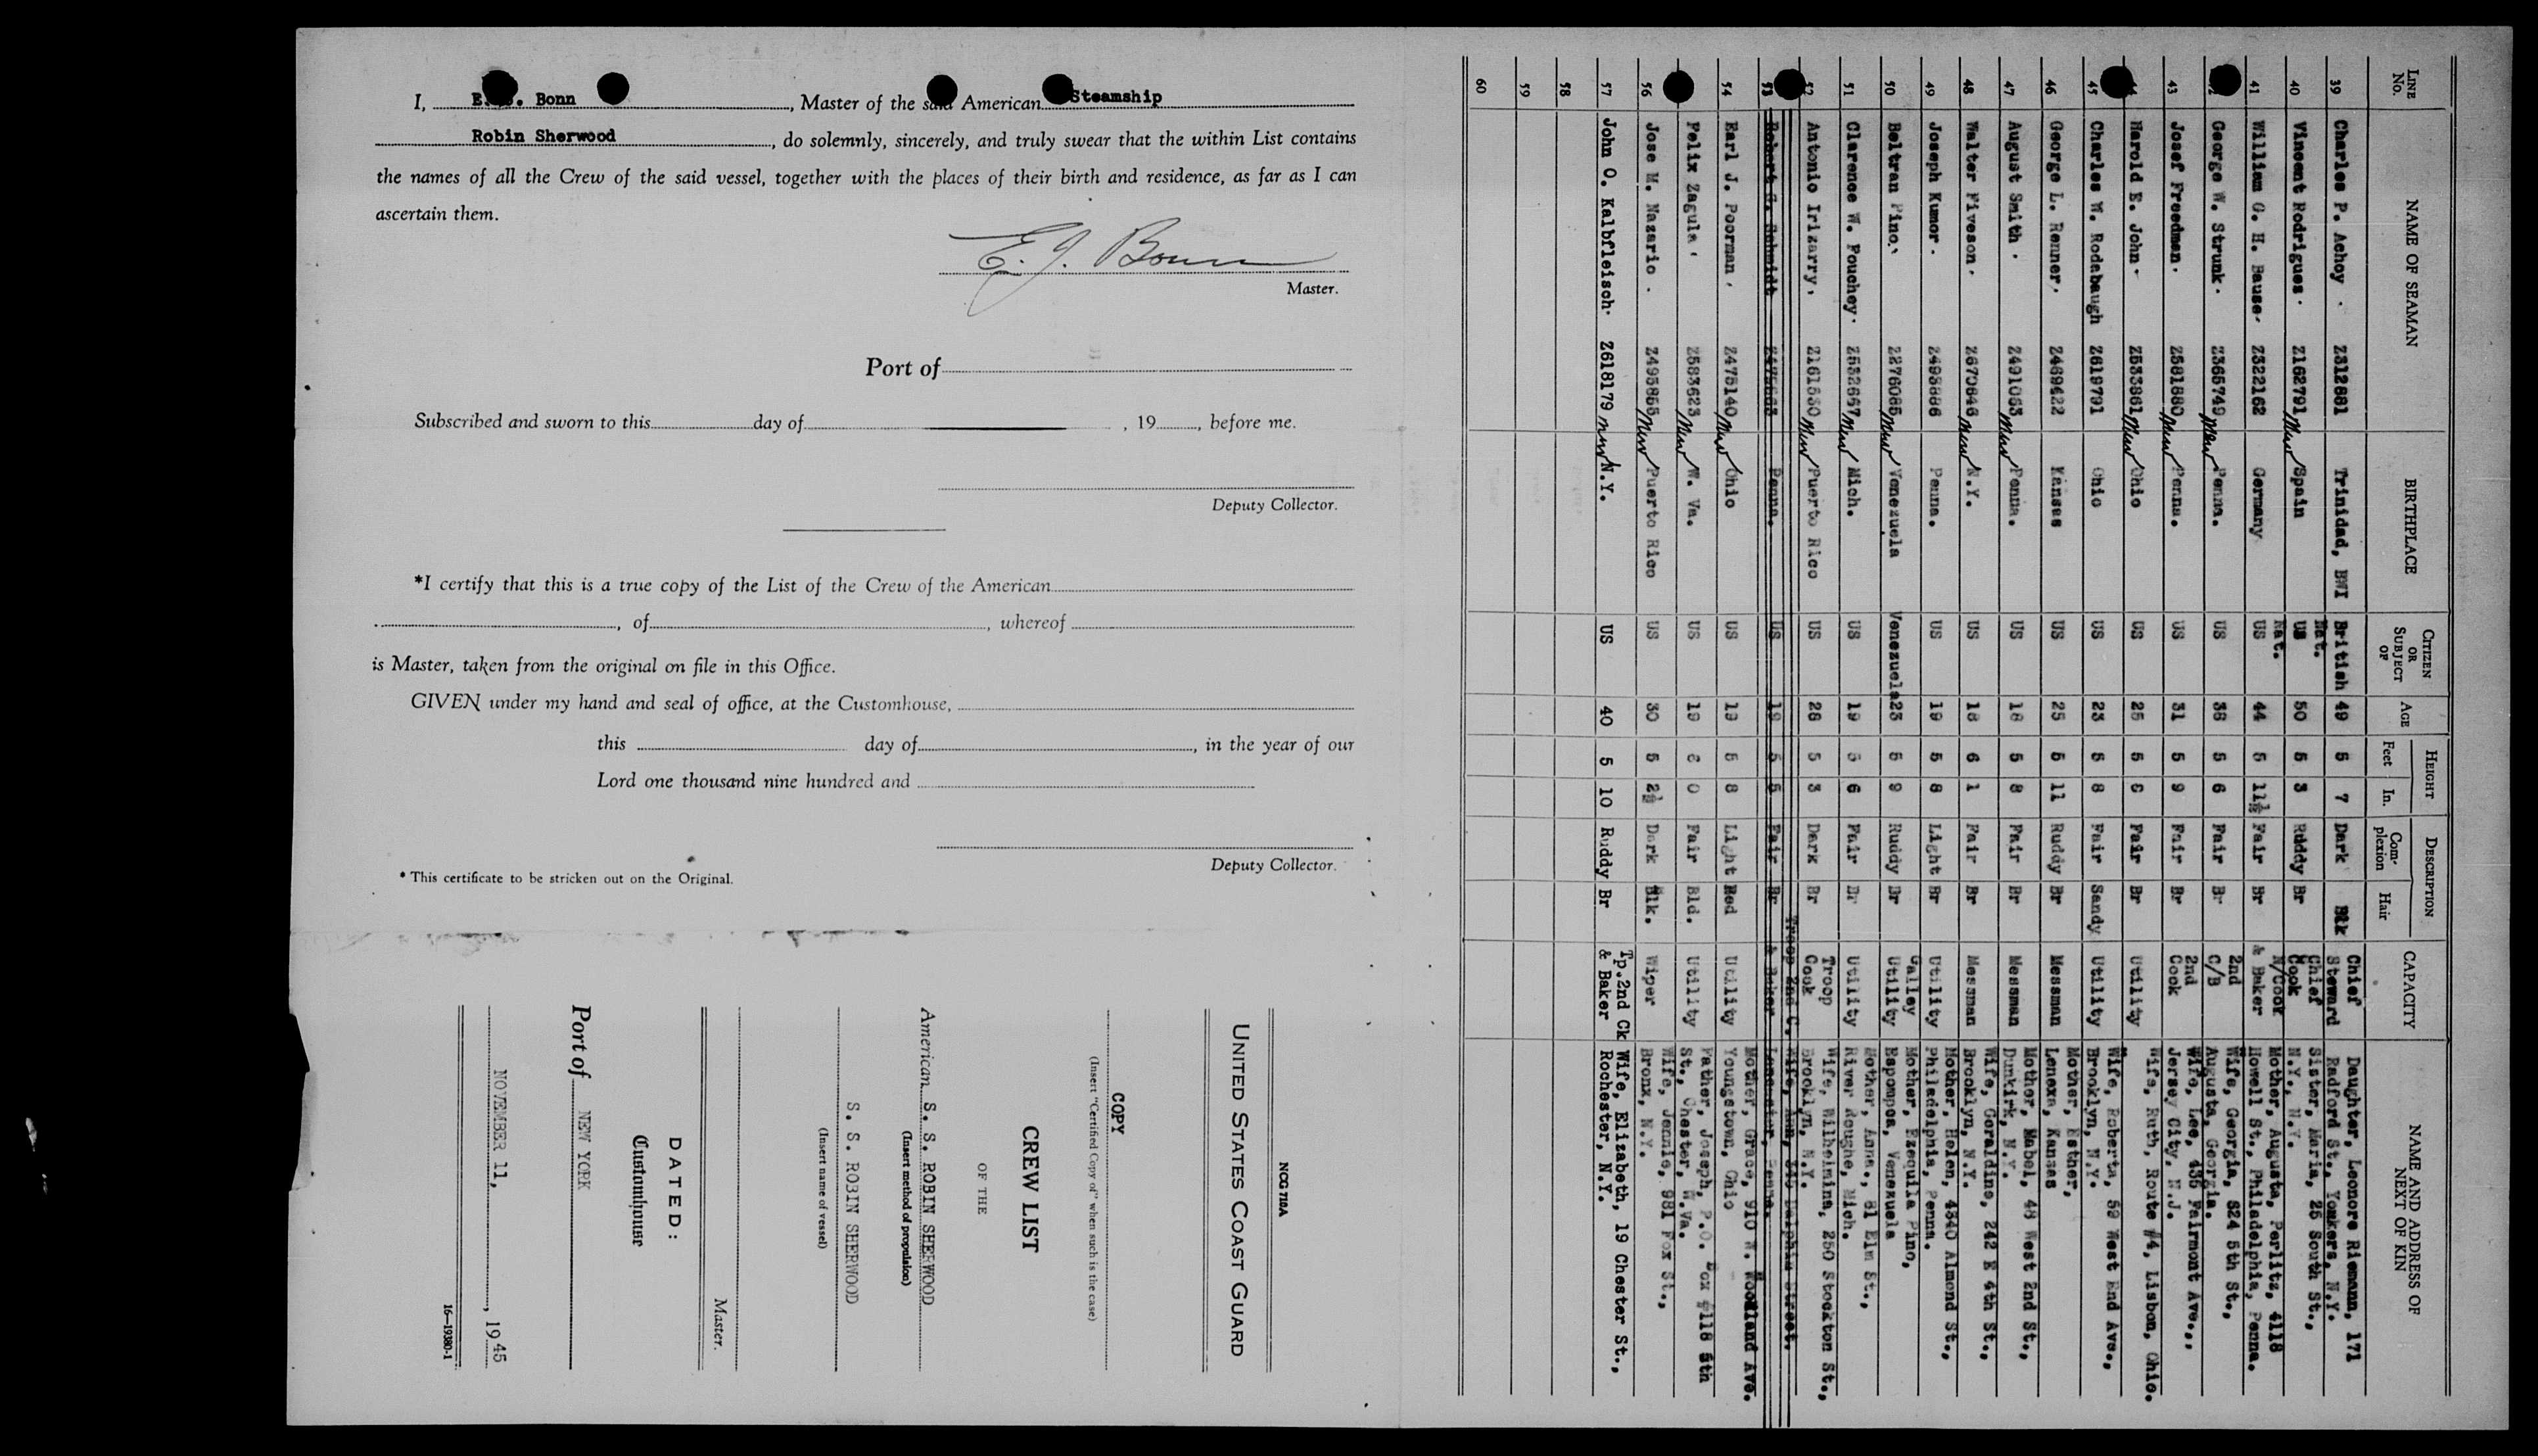 I, E. J. Bonn, Master of the said American Steamship
Robin Sherwood, do solemnly, sincerely, and truly swear that the within List contains
the names of all the Crew of the said vessel, together with the places of their birth and residence, as far as I can
ascertain them.
E. J. Bonn
Master.
Port of
Subscribed and sworn to this day of , 19 , before me.
Deputy Collector.
*I certify that this is a true copy of the List of the Crew of the American
, of , whereof
is Master, taken from the original on file in this Office.
GIVEN under my hand and seal of office, at the Customhouse,
this day of , in the year of our
Lord one thousand nine hundred and
Deputy Collector.
* This certificate to be stricken out on the Original.
NCG 718A
UNITED STATES COAST GUARD
COPY
(Insert "Certified Copy of" when such is the case)
CREW LIST
OF THE
American S. S. ROBIN SHERWOOD
(Insert method of propulsion)
S. S. ROBIN SHERWOOD
(Insert name of vessel)
Master.
DATED:
Customhouse
Port of NEW YORK
NOVEMBER 11, , 1945
16—19380-1
LINE No. NAME OF SEAMAN BIRTHPLACE CITIZEN OR SUBJECT OF AGE HEIGHT Feet In. DESCRIPTION Complexion Hair CAPACITY NAME AND ADDRESS OF NEXT OF KIN
39 Charles P. Achoy Z312881 Trinidad, BWI British 49 5 7 Dark Blk Chief Steward Daughter, Leonore Riemann, 171 Radford St., Yonkers, N.Y.
40 Vincent Rodrigues Z162791 Spain Nat. US 50 5 3 Ruddy Br Chief Cook Sister, Maria, 25 South St., N.Y., N.Y.
41 William G. H. Bause Z322162 Germany Nat. US 44 5 11½ Fair Br N/Cook & Baker Mother, Augusta, Perlitz, 4118 Howell St., Philadelphia, Penna.
George W. Strunk Z365749 Penna. US 38 5 6 Fair Br 2nd C/B Wife, Georgia, 824 5th St., Augusta, Georgia.
43 Josef Freedman Z581880 Penna. US 31 5 9 Fair Br 2nd Cook Wife, Lee, 435 Fairmont Ave., Jersey City, N.J.
Harold E. John Z533861 Ohio US 25 5 Fair Br Utility Wife, Ruth, Route #4, Lisbon, Ohio.
45 Charles W. Rodabaugh Z619791 Ohio US 23 5 8 Fair Sandy Utility Wife, Roberta, 52 West End Ave., Brooklyn, N.Y.
46 George L. Renner Z469422 Kansas US 25 5 11 Ruddy Br Messman Mother, Esther, Lenexa, Kansas
47 August Smith Z491053 Penna. US 18 5 8 Fair Br Messman Mother, Mabel, 48 West 2nd St., Dunkirk, N.Y.
48 Walter Fiveson Z670846 N.Y. US 18 6 1 Fair Br Messman Wife, Geraldine, 242 E 4th St., Brooklyn, N.Y.
49 Joseph Kumor Z493886 Penna. US 19 5 8 Light Br Utility Mother, Helen, 4340 Almond St., Philadelphia, Penna.
50 Beltran Pino Z276085 Venezuela Venezuela 23 5 9 Ruddy Br Galley Utility Mother, Ezequila Pino, Espompca, Venezuela
51 Clarence W. Pouchey Z532667 Mich. US 19 5 6 Fair Br Utility Mother, Anna, 81 Elm St., River Roughe, Mich.
52 Antonio Irizarry Z161530 Puerto Rico US 28 5 3 Dark Br Troop Cook Wife, Wilhelmina, 250 Stockton St., Brooklyn, N.Y.
53 Robert G. Schmidt Penna. US 19 5 5 Fair Br Troop 2nd C. & Baker Wife, Ann, Street, Lancaster, Penna.
54 Earl J. Poorman Z475140 Ohio US 19 5 8 Light Red Utility Mother, Grace, 910 W. Woodland Ave. Youngstown, Ohio
Felix Zagula Z583623 W. Va. US 19 6 0 Fair Bld. Utility Father, Joseph, P.O. Box #118 5th St., Chester, W.Va.
56 Jose M. Nazario Z495855 Puerto Rico US 30 5 2½ Dark Blk. Wiper Wife, Jennie, 981 Fox St., Bronx, N.Y.
57 John O. Kalbfleisch Z618179 N.Y. US 40 5 10 Ruddy Br Tp.2nd Ck & Baker Wife, Elizabeth, 19 Chester St., Rochester, N.Y.
58
59
60